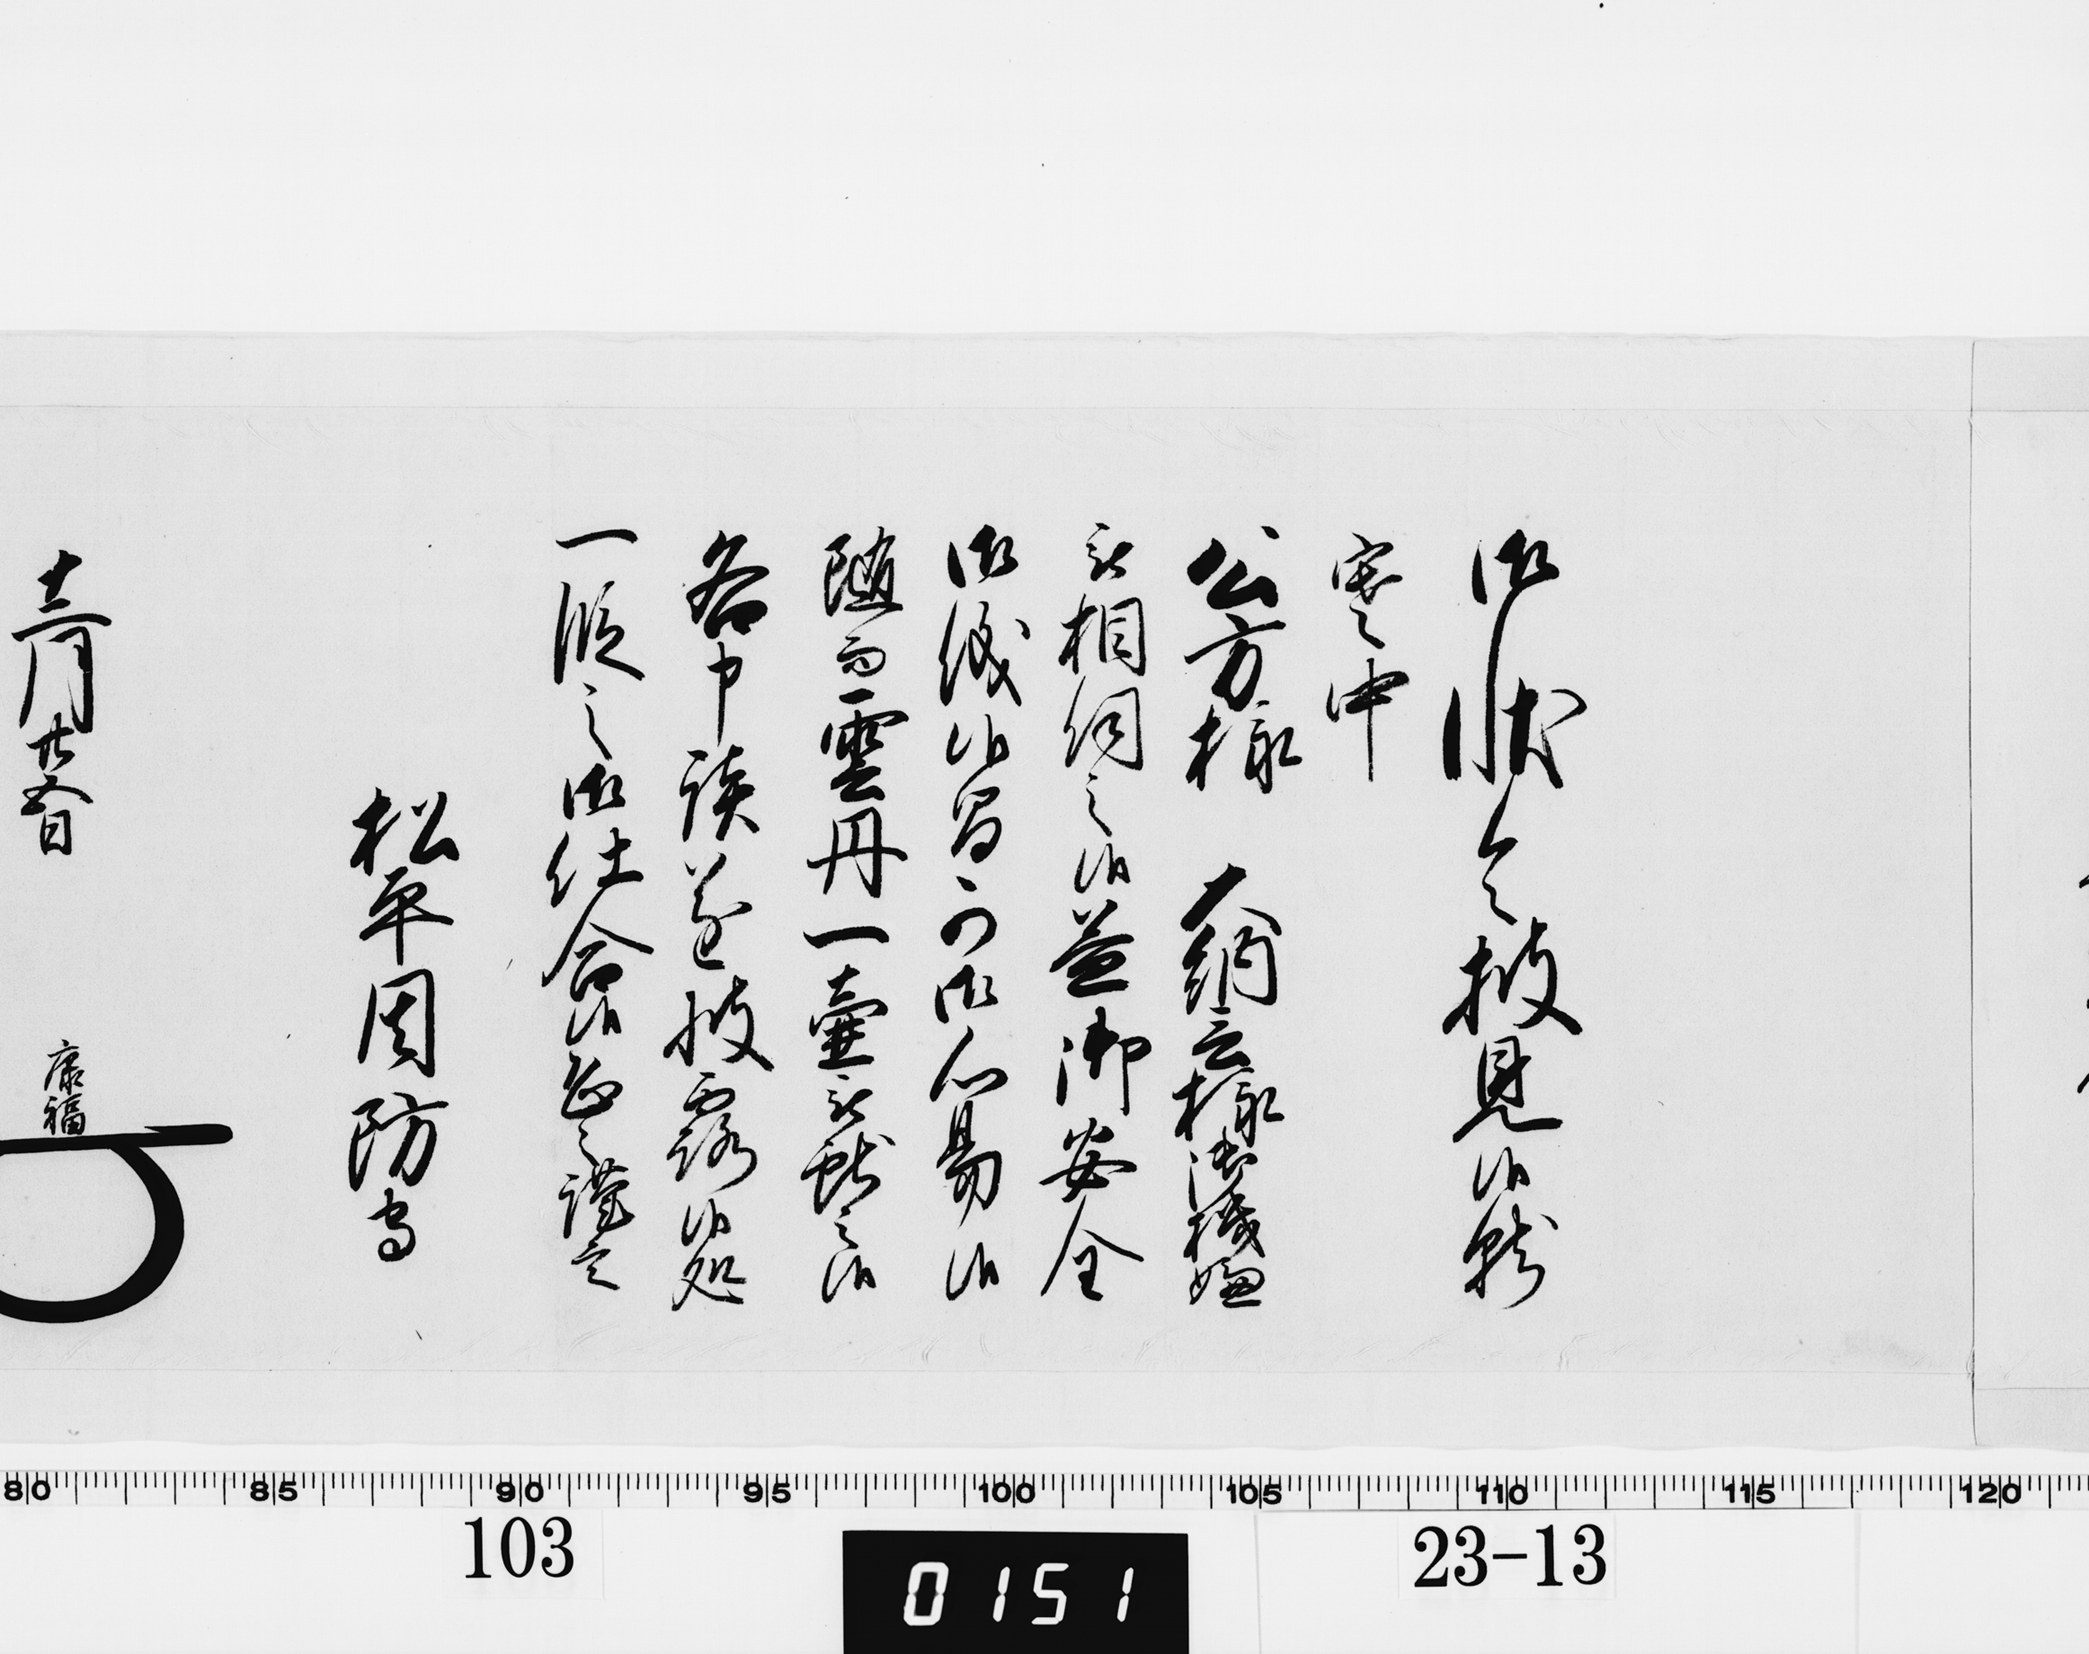 御状令披見候就
寒中
公方様　大納言様御機嫌
被相伺之候益御安全
御儀候間可御心易候
随而雲丹一壷被献之候
各申談遂披露候処
一段之御仕合候恐々謹言
松平周防守
十二月廿五日
康福
80 85 90 95 100 105 110 115 120
103
0151
23-13